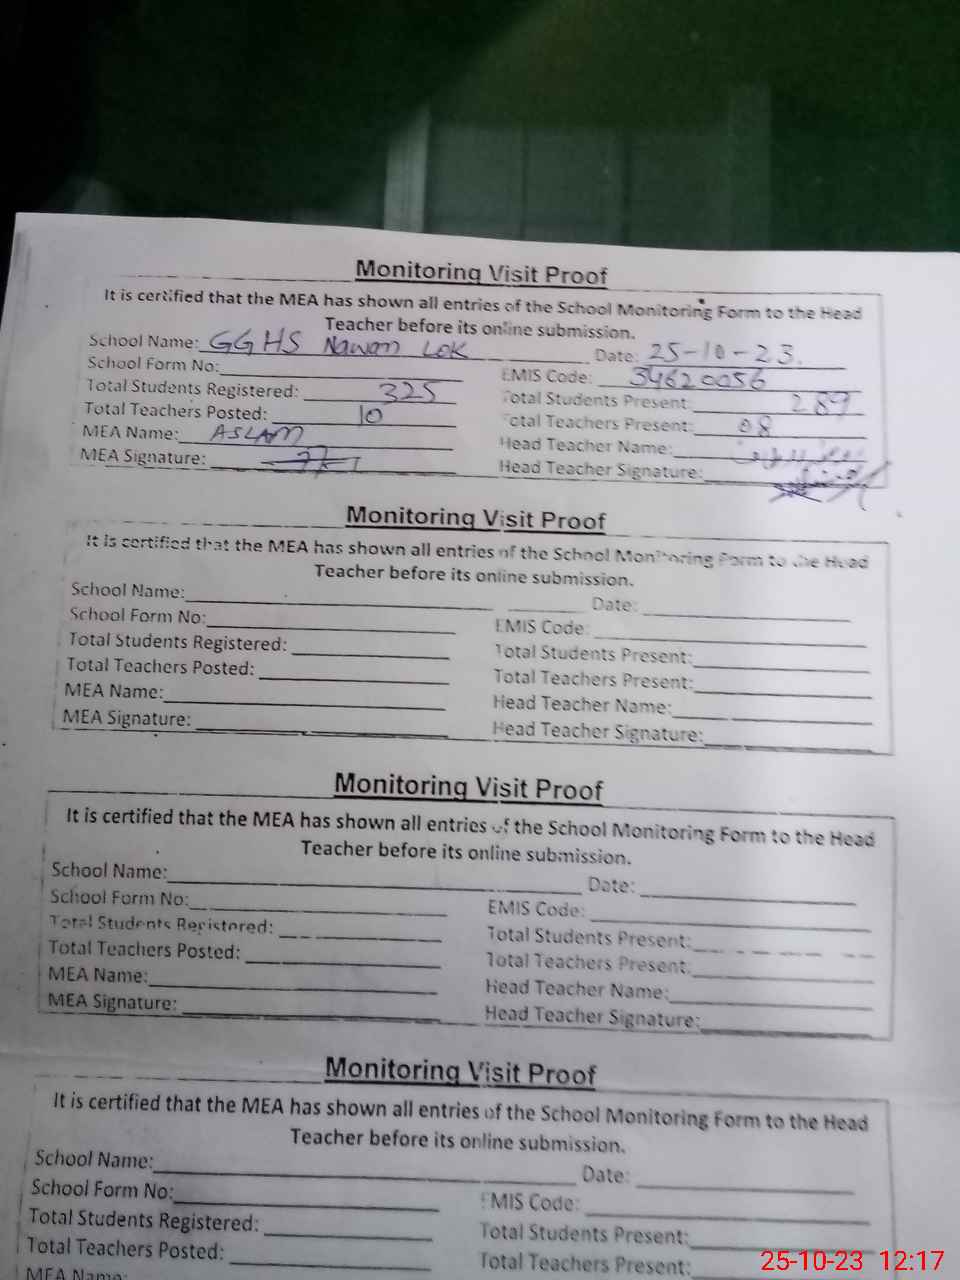 Monitoring Visit Proof
It is certified that the MEA has shown all entries of the School Monitoring Form to the Head
Teacher before its online submission.
School Name: GGHS Nawan Lok Date: 25-10-23.
School Form No: EMIS Code: 34620056
Total Students Registered: 325 Total Students Present: 289
Total Teachers Posted: 10 Total Teachers Present: 08
MEA Name: ASLAM Head Teacher Name:
MEA Signature: Head Teacher Signature:
Monitoring Visit Proof
It is certified that the MEA has shown all entries of the School Monitoring Form to the Head
Teacher before its online submission.
School Name: Date:
School Form No: EMIS Code:
Total Students Registered: Total Students Present:
Total Teachers Posted: Total Teachers Present:
MEA Name: Head Teacher Name:
MEA Signature: Head Teacher Signature:
Monitoring Visit Proof
It is certified that the MEA has shown all entries of the School Monitoring Form to the Head
Teacher before its online submission.
School Name: Date:
School Form No: EMIS Code:
Total Students Registered: Total Students Present:
Total Teachers Posted: Total Teachers Present:
MEA Name: Head Teacher Name:
MEA Signature: Head Teacher Signature:
Monitoring Visit Proof
It is certified that the MEA has shown all entries of the School Monitoring Form to the Head
Teacher before its online submission.
School Name: Date:
School Form No: EMIS Code:
Total Students Registered: Total Students Present:
Total Teachers Posted: Total Teachers Present:
MEA Name:
25-10-23 12:17